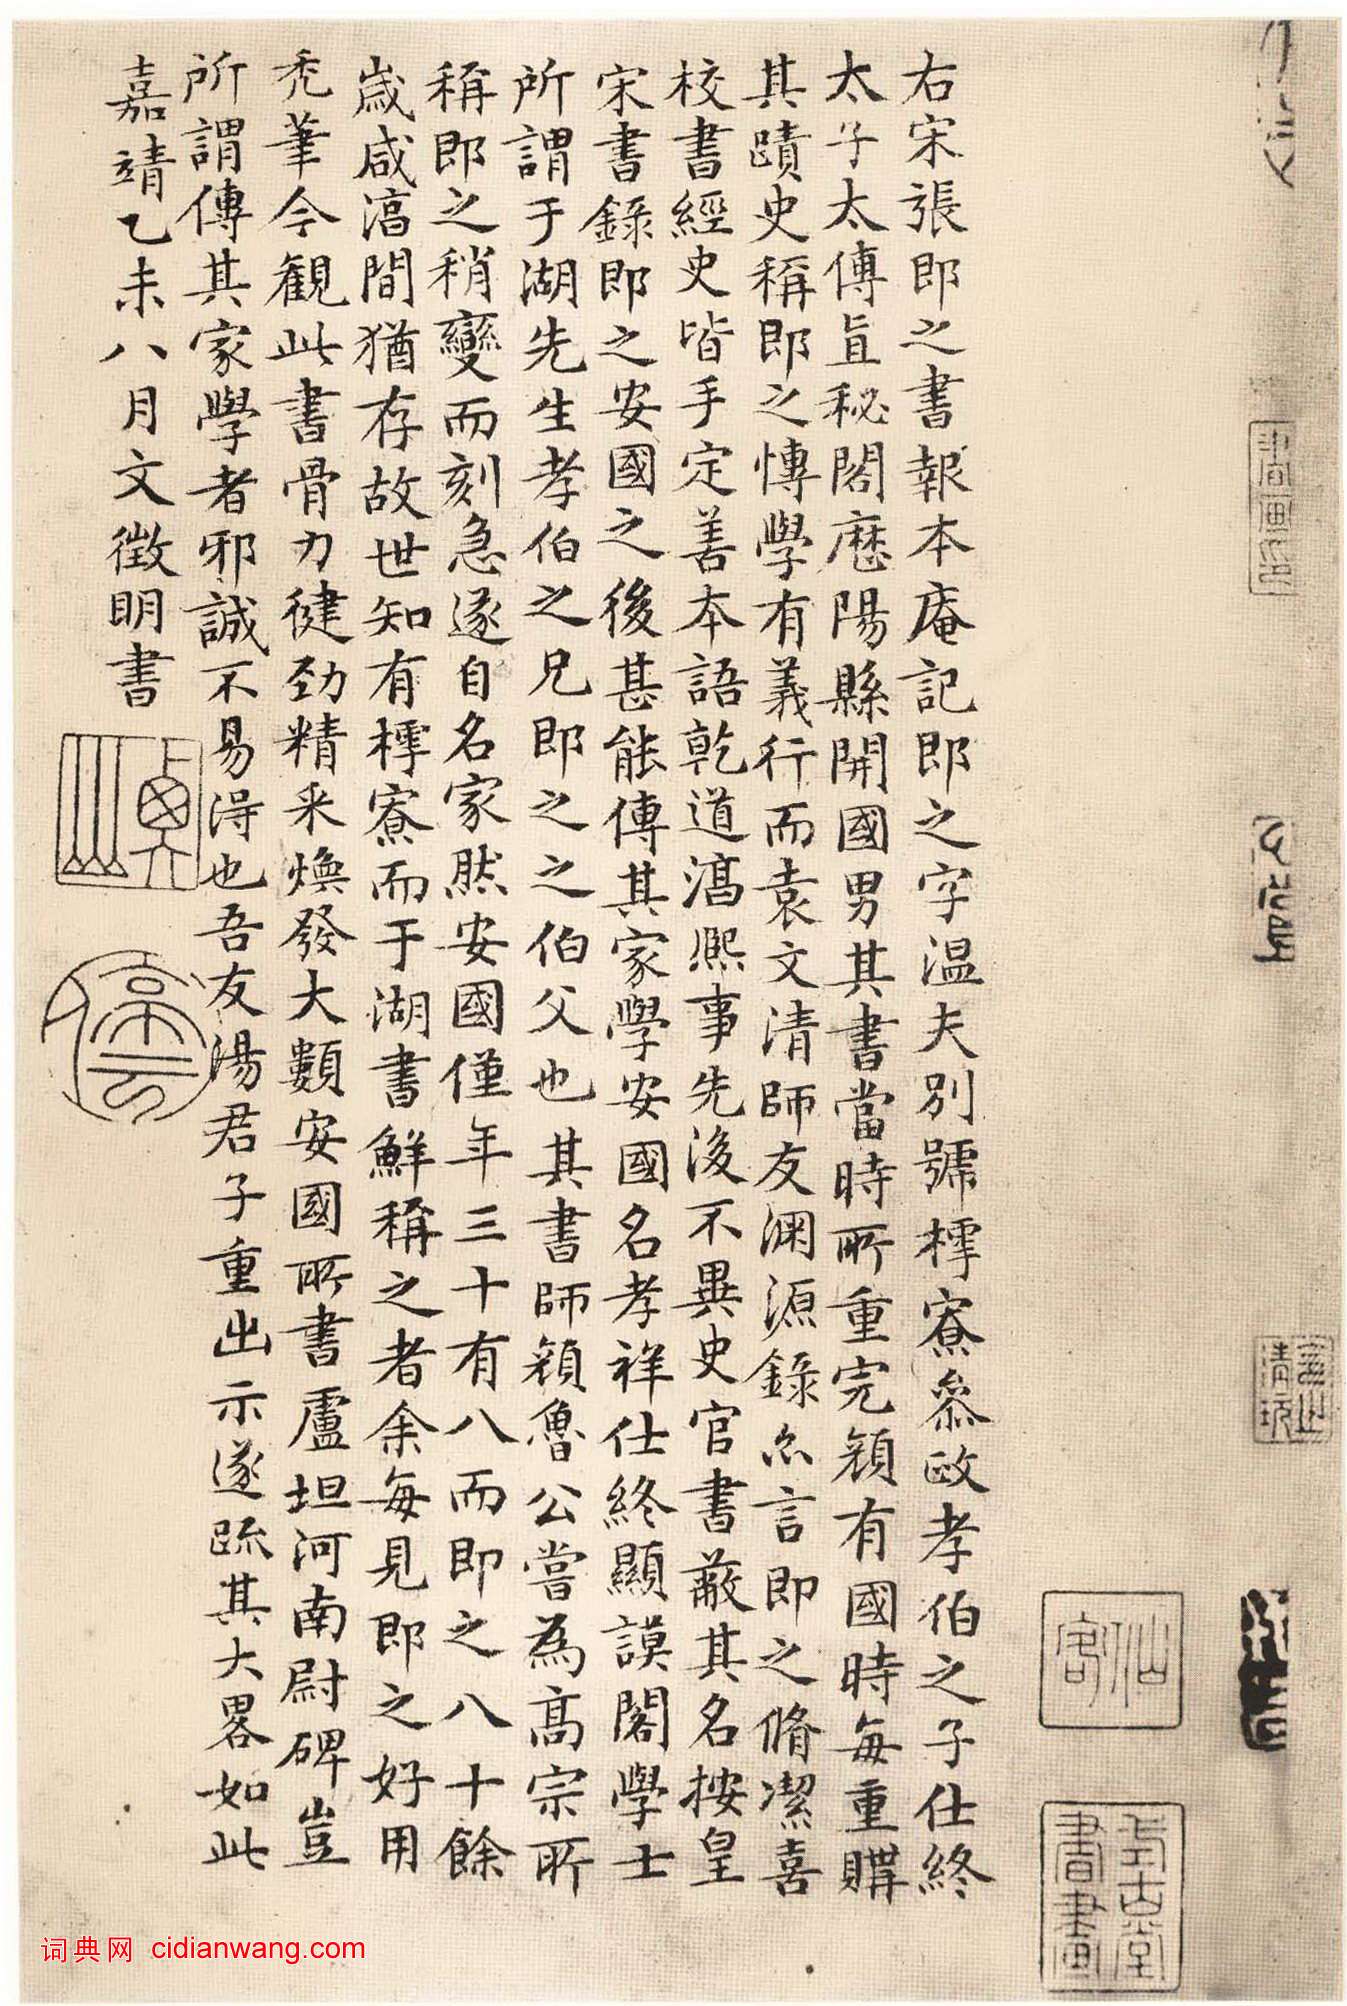 右宋張即之書報本庵記即之字溫夫別號樗寮叅政孝伯之子仕終
太子太傅直秘閣歷陽縣開國男其書當時所重完顏有國時每重購
其蹟史稱即之博學有義行而袁文清師友淵源錄亦言即之脩潔喜
校書經史皆手定善本語乾道淳熙事先後不異史官書蔽其名按皇
宋書錄即之安國之後甚能傳其家學安國名孝祥仕終顯謨閣學士
所謂于湖先生孝伯之兄即之之伯父也其書師顏魯公嘗為高宗所
稱即之稍變而刻急遂自名家然安國僅年三十有八而即之八十餘
歲咸淳間猶存故世知有樗寮而于湖書鮮稱之者余每見即之好用
禿筆今觀此書骨力健勁精采煥發大類安國所書盧坦河南尉碑豈
所謂傳其家學者邪誠不易得也吾友湯君子重出示遂疏其大畧如此
嘉靖乙未八月文徵明書
書畫印
清玩
仙客
式古堂
書畫
詞典网 cidianwang.com